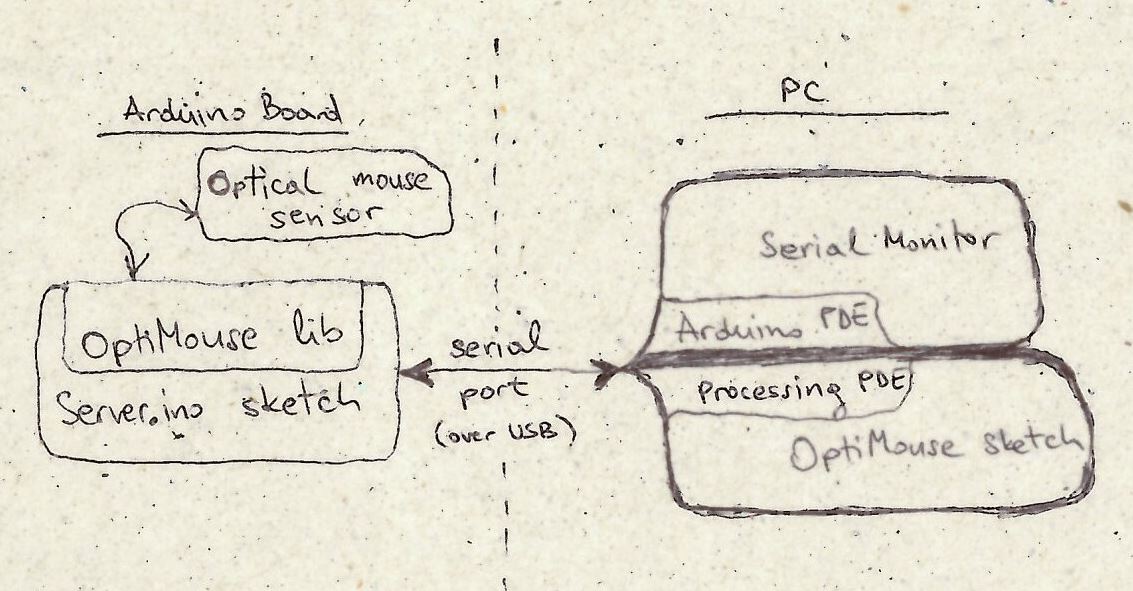 Arduino Board
Optical mouse
sensor
OptiMouse lib
Server.ino sketch
serial
port
(over USB)
PC
Serial Monitor
Arduino PDE
Processing PDE
OptiMouse sketch